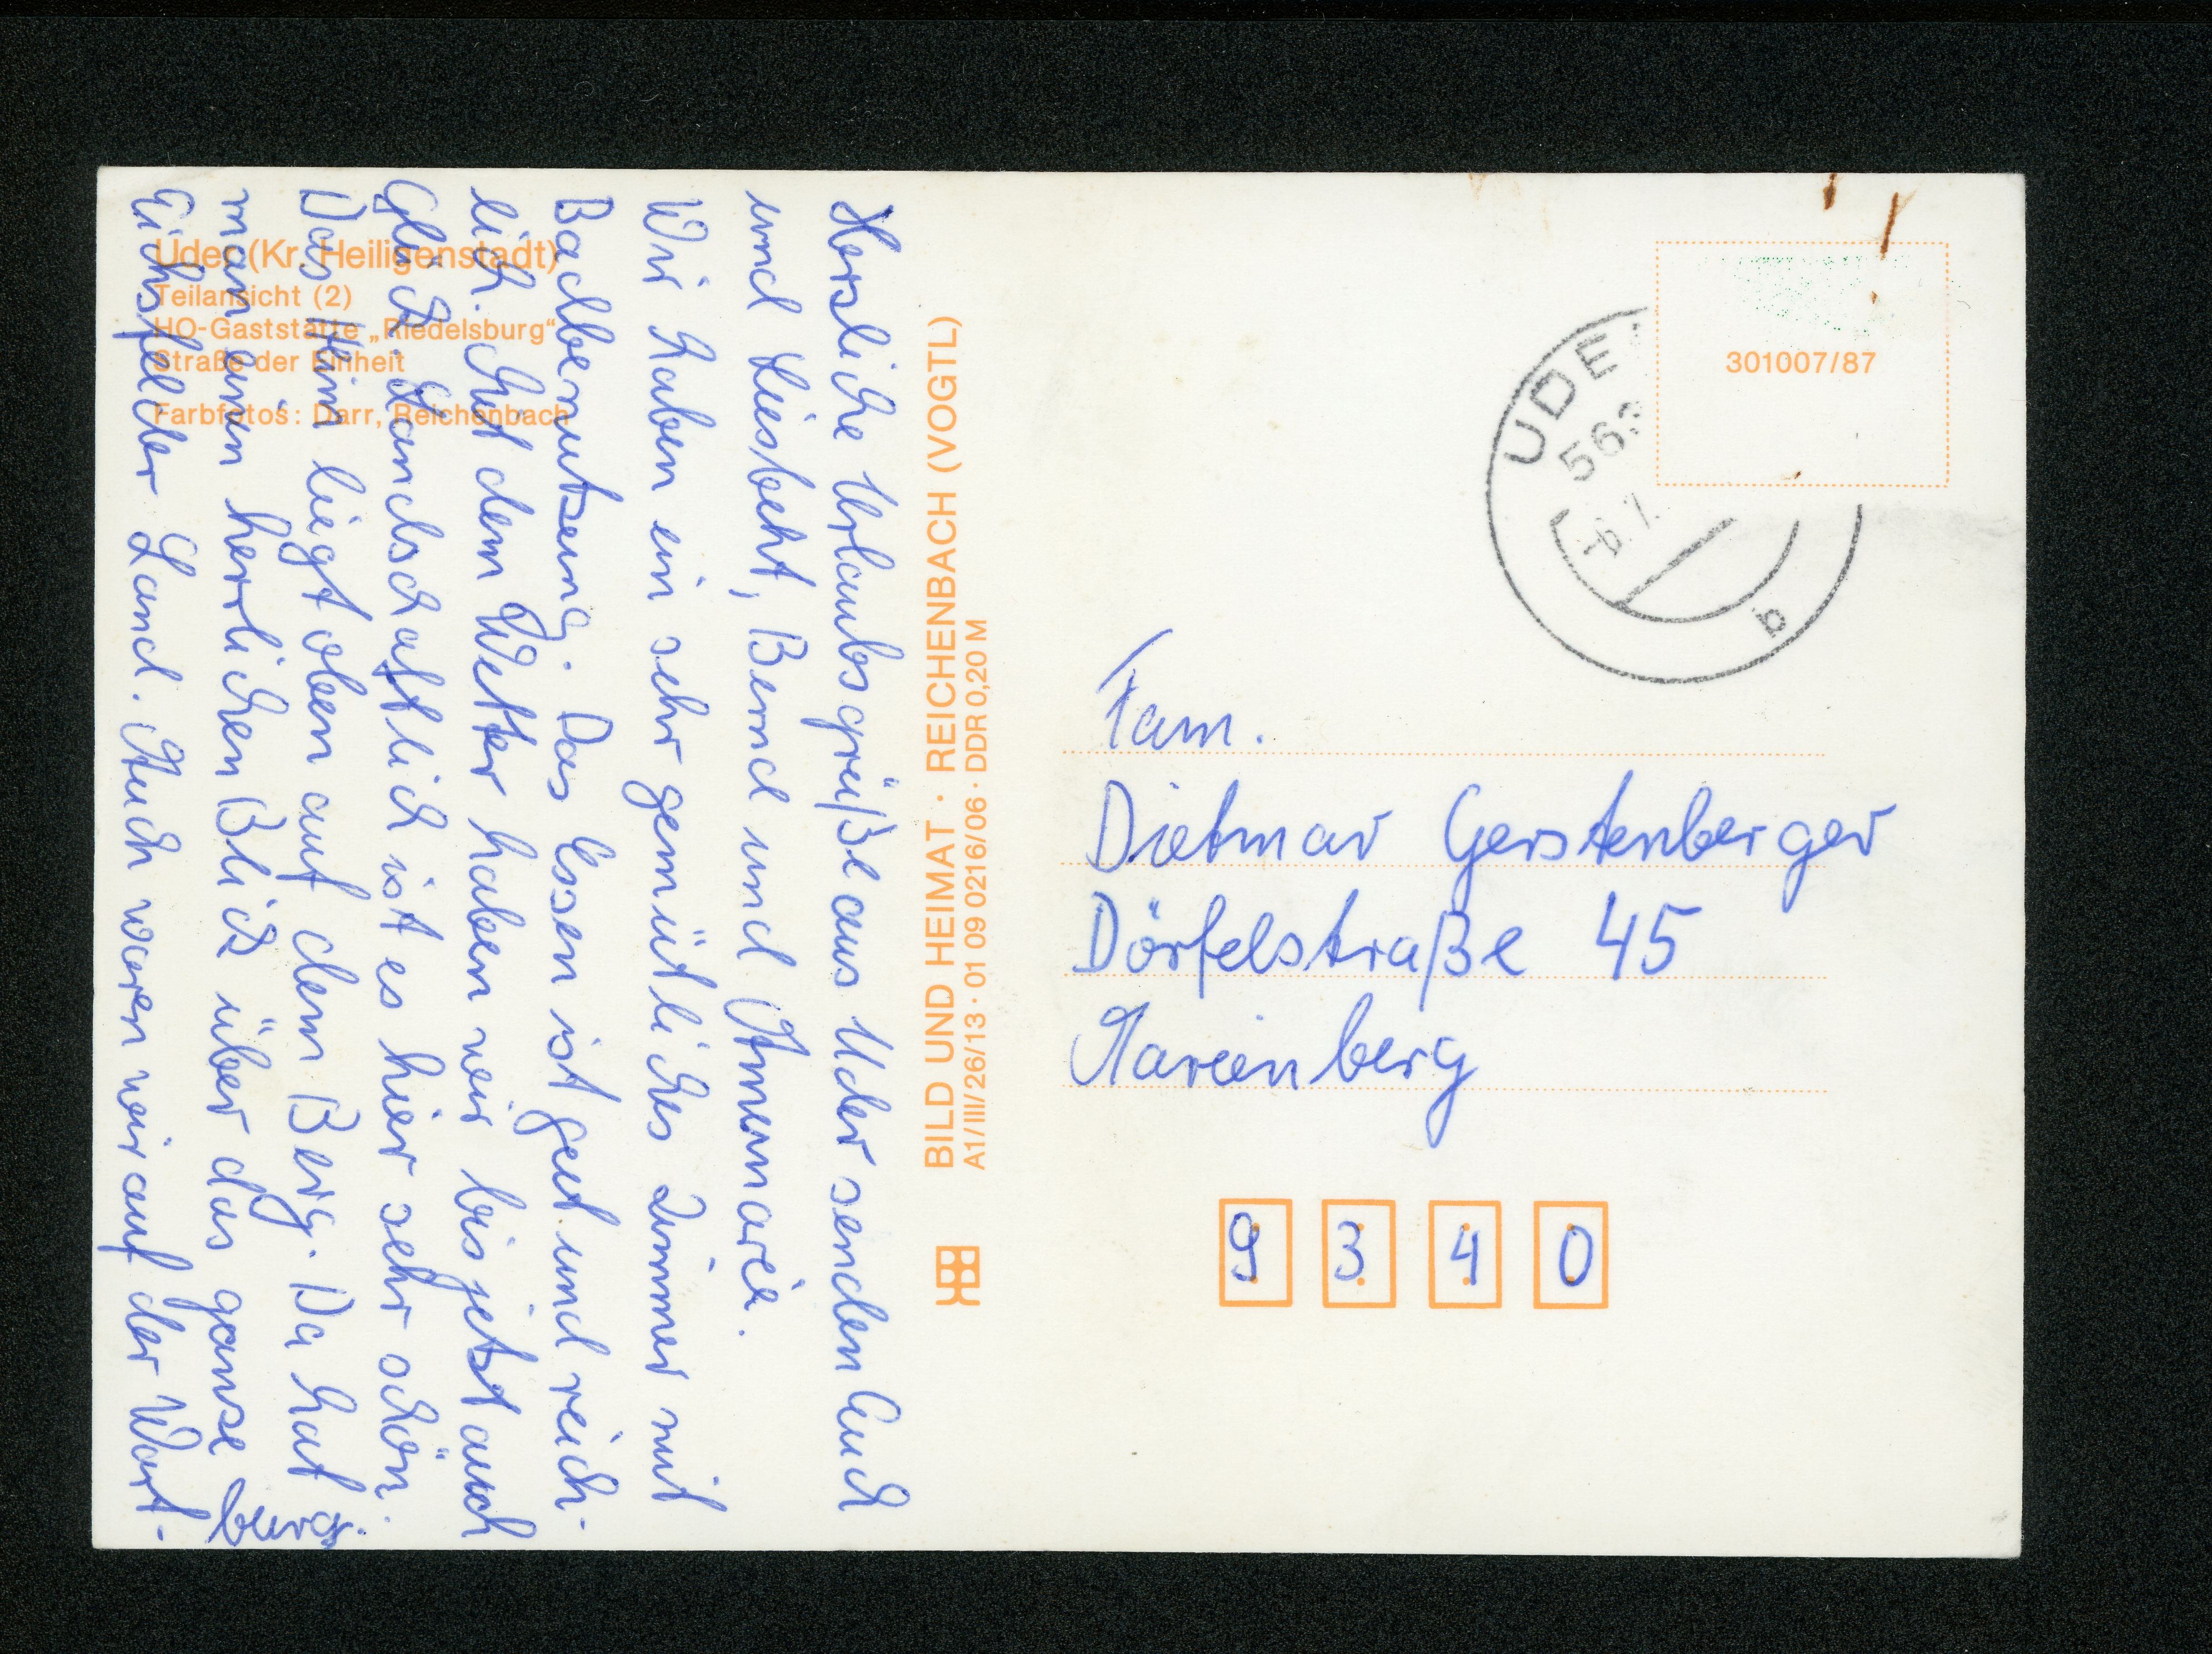 Herzliche Urlaubsgrüße aus Uder senden Euch
und Liesbeht, Bernd und Annemarie.
Wir haben ein sehr gemütliches Zimmer mit
Badbenutzung. Das Essen ist gut und reich-
lich. Mit dem Wetter haben wir bis jetzt auch
Glück. Landschaftlich ist es hier sehr schön.
Das Heim liegt oben auf dem Berg. Da hat
man einen herrlichen Blick über das ganze
Eichsfelder Land. Auch waren wir auf der Wart-
burg.
Uder (Kr. Heiligenstadt)
Teilansicht (2)
HO-Gaststätte „Riedelsburg“
Straße der Einheit
Farbfotos: Darr, Reichenbach
BILD UND HEIMAT · REICHENBACH (VOGTL)
A1/III/26/13 · 01 09 0216/06 · DDR 0,20 M
301007/87
UDE
b
Fam.
Dietmar Gerstenberger
Dörfelstraße 45
Marienberg
9 3 4 0